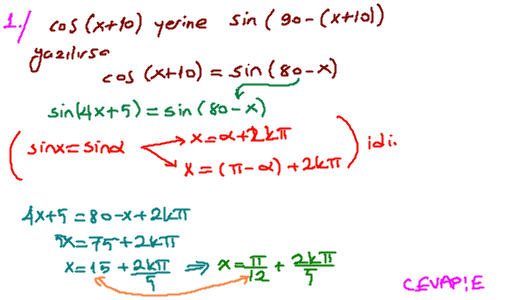 1./ cos(x+10) yerine sin(90-(x+10))
yazılırsa
cos(x+10) = sin(80-x)
sin(4x+5) = sin(80-x)
(sinx = sinα → x = α + 2kπ
→ x = (π-α) + 2kπ) idi.
4x+5 = 80-x+2kπ
5x = 75+2kπ
x = 15 + 2kπ/5 ⇒ x = π/12 + 2kπ/5
CEVAP:E